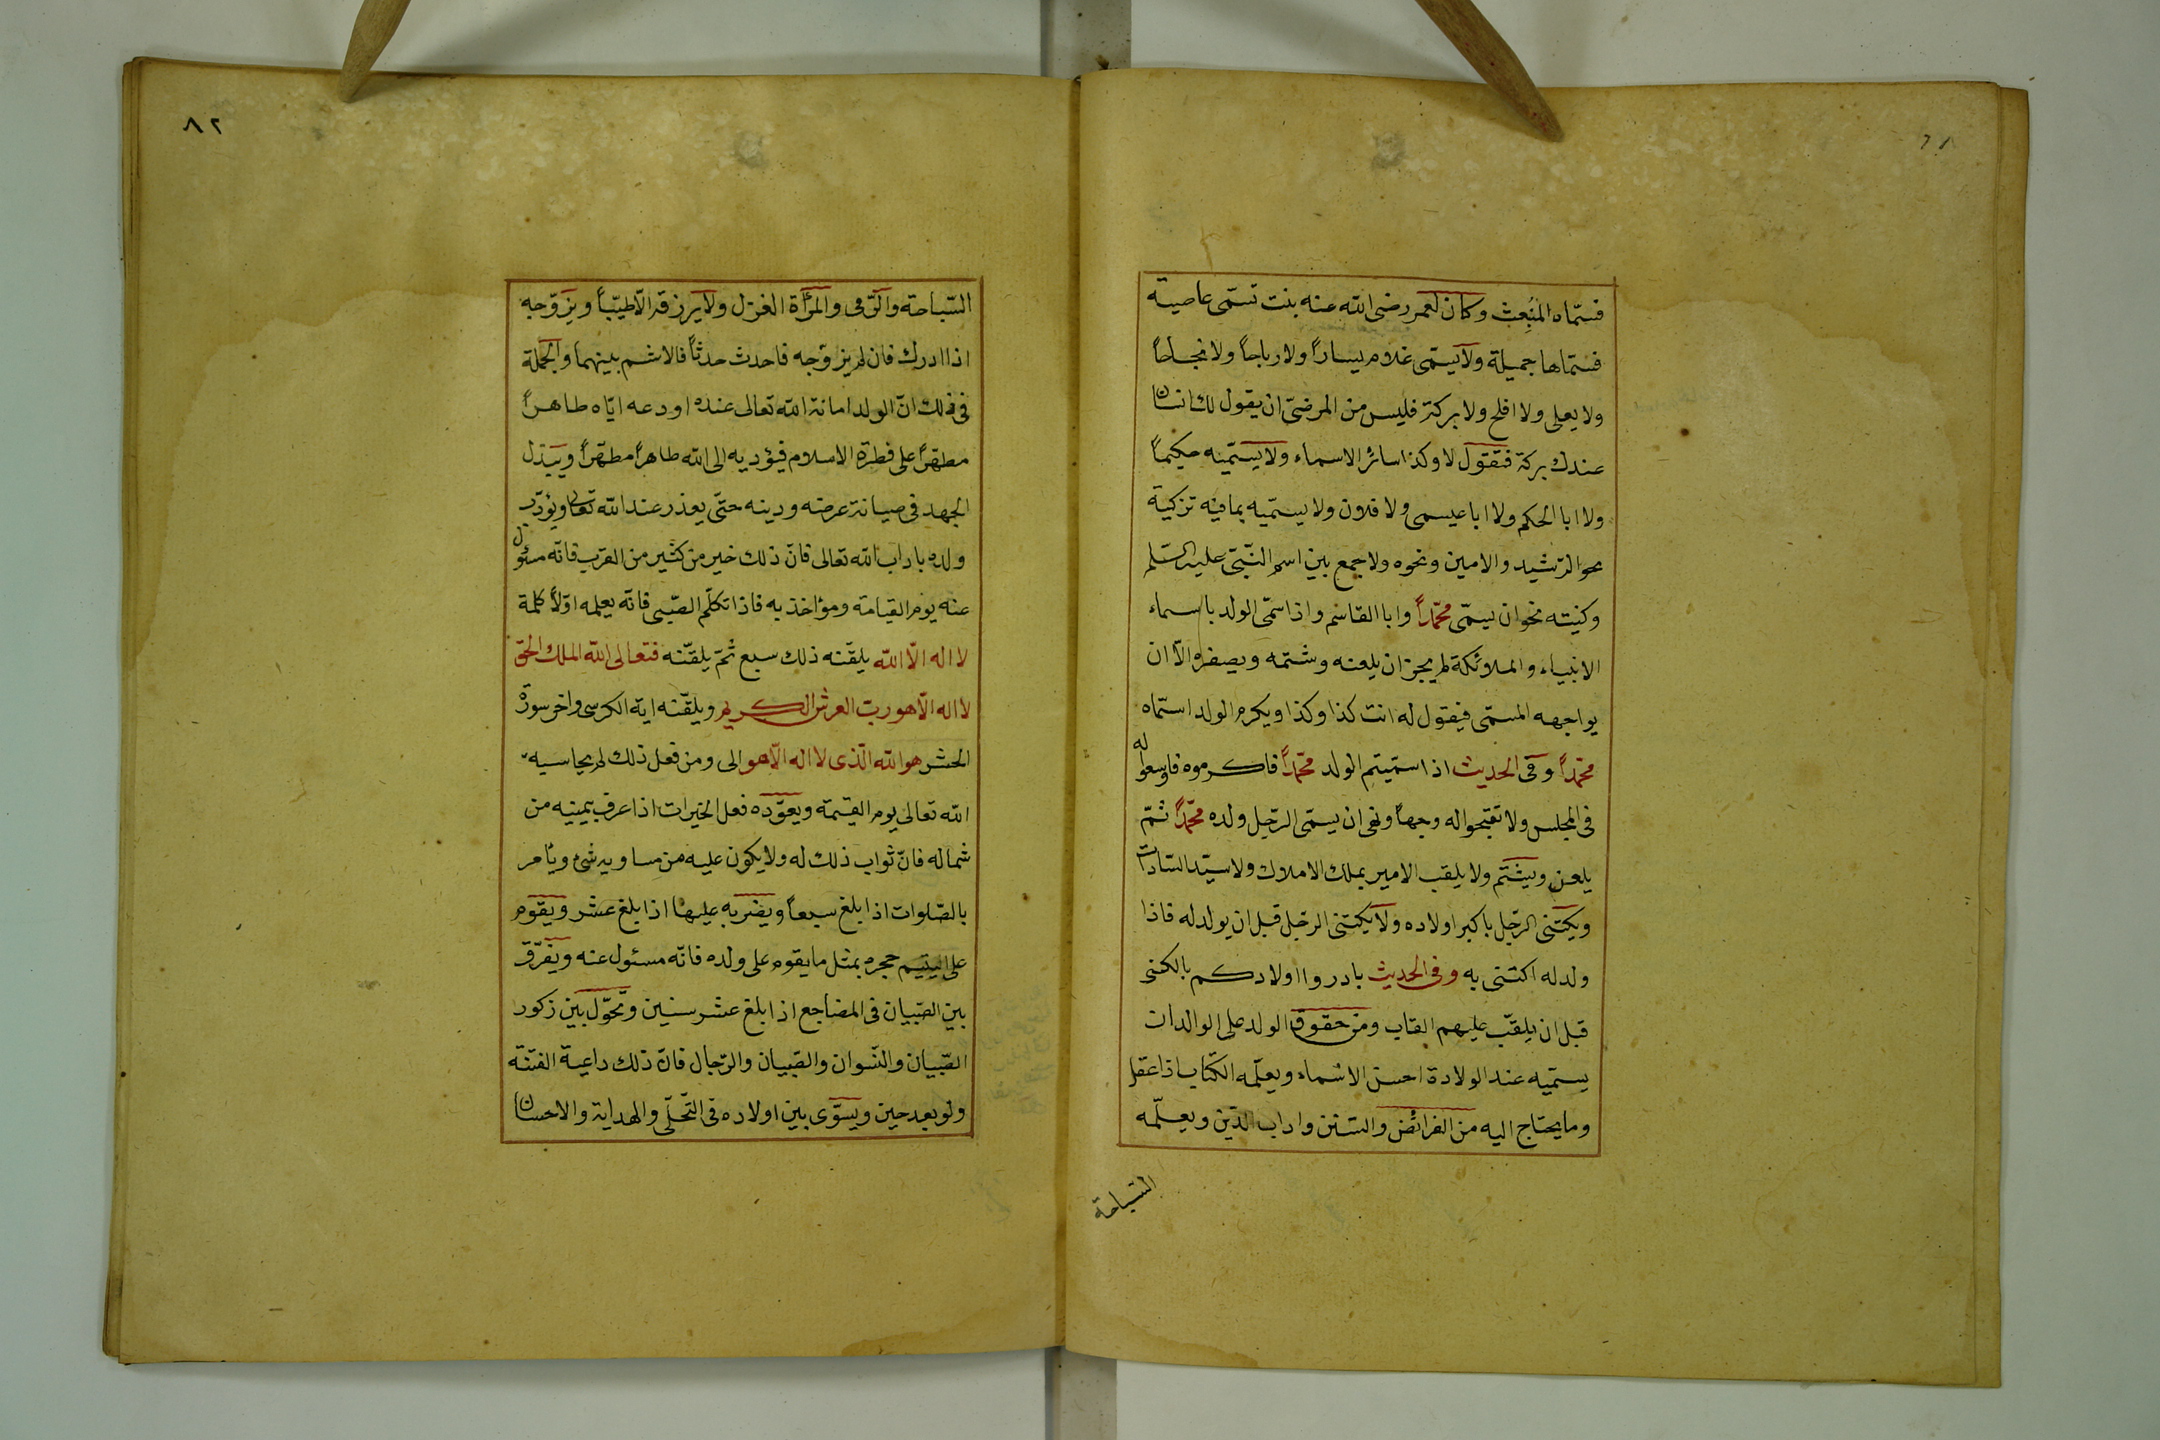 فسمّاه المنبعث وكان لعمر رضى الله عنه بنت تسمّى عاصية
فسمّاها جميلة ولا يسمّى غلام يساراً ولا رباحاً ولا نجاحاً
ولا يعلى ولا افلح ولا بركة فليس من المرضىّ ان يقول لك انسان
عندك بركة فتقول لا وكذا سائر الاسماء ولا يسمّيه حكيماً
ولا ابا الحكم ولا ابا عيسى ولا فلان ولا يسمّيه بما فيه تزكية
نحو الرّشيد والامين ونحوه ولا جمع بين اسم النّبىّ عليه السّلم
وكنيته نحو ان يسمّى محمّداً وابا القاسم واذا سمّى الولد باسماء
الانبياء والملائكة لم يجز ان يلعنه وشتمه ويصغره الّا ان
يواجهه المسمّى فيقول له انت كذا وكذا ويكرم الولد اسمّاه
محمّداً وفى الحديث اذا سمّيتم الولد محمّداً فاكرموه فاوسعوا له
فى المجلس ولا تقبّحوا له وجهاً ونهى ان يسمّى الرّجل ولده محمّداً ثمّ
يلعن ويشتم ولا يلقب الامير بملك الاملاك ولا سيّد السّادات
ويكتنى الرّجل باكبر اولاده ولا يكتنى الرجل قبل ان يولد له فاذا
ولد له اكتنى به وفى الحديث بادروا اولادكم بالكنى
قبل ان يلقّب عليهم القاب ومن حقوق الولد على الوالد ان
يسمّيه عند الولادة احسن الاسماء ويعلّمه الكتاب اذا عقل
وما يحتاج اليه من الفرائض والسّنن واداب الدّين ويعلّمه
السّباحة
٨٢
السّباحة والرّمى والمرأة الغزل ولا يرزقه الّا طيّباً ويزوّجه
اذا ادرك فان لم يزوّجه فاحدث حدثاً فالاثم بينهما والجملة
فى ذلك انّ الولد امانة الله تعالى عنده اودعه ايّاه طاهراً
مطهّراً على فطرة الاسلام فيؤديه الى الله طاهراً مطهّراً ويبذل
الجهد فى صيانة عرضه ودينه حتّى يعذر عند الله تعالى ويؤدّب
ولده باداب الله تعالى فانّ ذلك خير من كثير من القرب فانّه مسئول
عنه يوم القيامة ومؤاخذ به فاذا تكلّم الصّبى فانّه يعلمه اوّلاً كلمة
لا اله الّا الله يلقّنه ذلك سبع ثمّ يلقّنه فتعالى الله الملك الحقّ
لا اله الّا هو ربّ العرش الكريم ويلقّنه اية الكرسى واخر سورة
الحشر هو الله الّذى لا اله الّا هو الى ومن فعل ذلك لم يحاسبه
الله تعالى يوم القيمة ويعوّده فعل الخيرات اذا عرف يمينه من
شماله فانّ ثواب ذلك له ولا يكون عليه من مساويه شئ ويأمر
بالصّلوات اذا بلغ سبعاً ويضربه عليها اذا بلغ عشر ويقوم
على اليتيم حجره بمثل ما يقوم على ولده فانّه مسئول عنه ويفرّق
بين الصّبيان فى المضاجع اذا بلغ عشر سنين ويحوّل بين ذكور
الصّبيان والنّسوان والصّبيان والرّجال فانّ ذلك داعية الفتنة
ولو بعد حين ويسوّى بين اولاده فى التّحلّى والهداية والاحسان